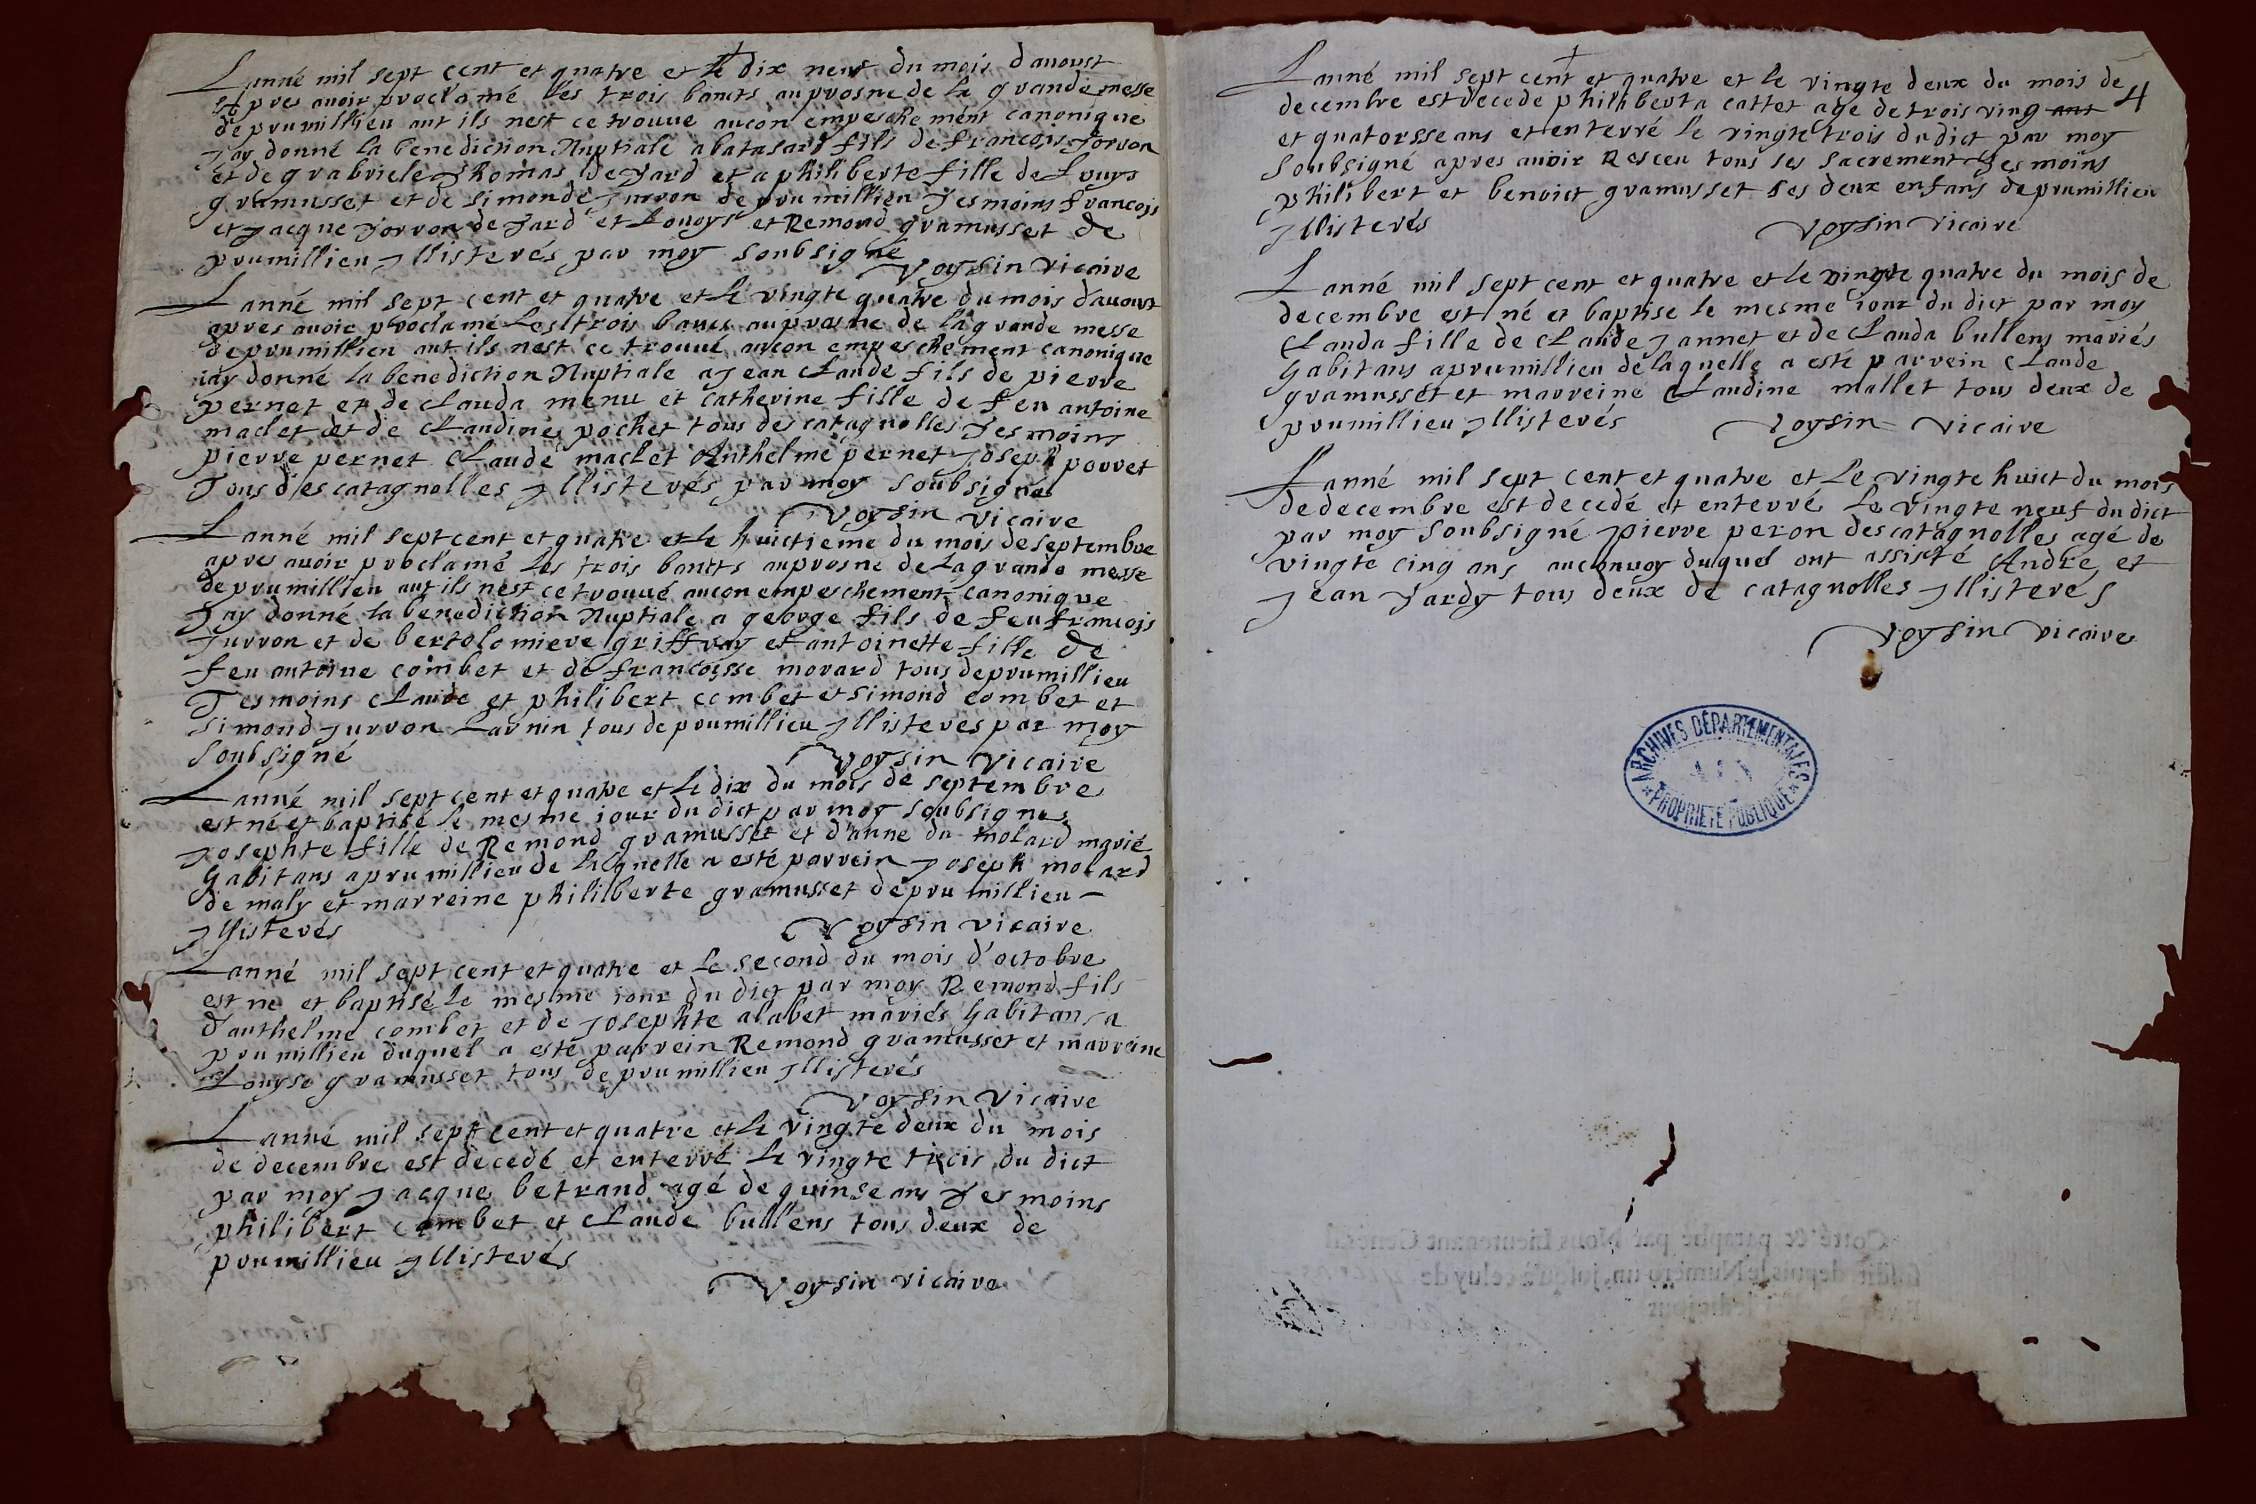 Lanné mil sept cent et quatre et le dix neuf du mois d'auoust
apres auoir proclamé les trois bancts au prosne de la grande messe
de prumillieu aut ils nest ce trouue aucon empeschement canonique
Jay donné la benediction Nuptiale a batasard fils de francois Jorron
et de grabriele Thomas de Jard et a philiberte fille de Louys
gramusset et de simonde Jurron de prumillieu Tesmoins francois
et Jacque Jorron de Jard et Louoys et Remond gramusset de
prumillieu Illisterés par moy soubsigné
Voysin vicaire
Lanné mil sept cent et quatre et le vingte quatre du mois d'auoust
apres auoir proclamé Les trois bancs au prosne de la grande messe
de prumillieu aut ils nest ce trouué aucon empeschement canonique
iay donné la benediction Nuptiale a Jean Claude fils de pierre
pernet et de Clauda menu et catherine fille de feu antoine
maclet et de Claudine pochet tous des catagnolles Tesmoins
pierre pernet Claude maclet Anthelme pernet Joseph porret
Tous des catagnolles Illisterés par moy soubsigné
Voysin vicaire
Lanné mil sept cent et quatre et le huictieme du mois de septembre
apres auoir proclamé Les trois bancts au prosne de la grande messe
de prumillieu aut ils nest ce trouué aucon empeschement canonique
Jay donné la benediction Nuptiale a george fils de feu francois
Jurron et de bertolomiere griffray et antoinette fille de
feu antoine combet et de francoisse morard tous de prumillieu
Tesmoins Claude et philibert combet et simond combet et
simond Jurron Larnin tous de prumillieu Illisteres par moy
soubsigné
Voysin vicaire
Lanné mil sept cent et quatre et le dix du mois de septembre
est né et baptisé le mesme iour du dict par moy soubsigné
Josephte fille de Remond gramusset et d'anne du molard marié
habitans a prumillieu de laquelle a esté parrein Joseph molard
de maly et marreine philiberte gramusset de prumillieu -
Illisterés
Voysin vicaire
Lanné mil sept cent et quatre et le second du mois d'octobre
est ne et baptisé le mesme iour du dict par moy Remond fils
d'anthelme combet et de Josephte alabet mariés habitans a
prumillieu duquel a esté parrein Remond gramusset et marreine
Louyse gramusset tous de prumillieu Illisterés
Voysin vicaire
Lanné mil sept cent et quatre et le vingte deux du mois
de decembre est decedé et enterré le vingte trois du dict
par moy Jacque betrand agé de quinse ans Tesmoins
philibert combet et Claude bullens tous deux de
prumillieu Illisterés
Voysin vicaire
4
Lanné mil sept cent et quatre et le vingte deux du mois de
decembre est decede philiberta cattet agé de trois ving ans
et quatorsse ans et enterré le vingte trois du dict par moy
soubsigné apres auoir Resceu tous ses sacrement Tesmoins
philibert et benoict gramusset ses deux enfans de prumillieu
Illisterés
Voysin vicaire
Lanné mil sept cent et quatre et le vingte quatre du mois de
decembre est né et baptise le mesme iour du dict par moy
Clauda fille de Claude Jannet et de Clauda bullens mariés
habitans a prumillieu de laquelle a esté parrein Claude
gramusset et marreine Claudine mallet tous deux de
prumillieu Illisterés
Voysin vicaire
Lanné mil sept cent et quatre et le vingte huict du mois
de decembre est decedé et enterré le vingte neuf du dict
par moy soubsigné pierre peron des catagnolles agé de
vingte cinq ans au conuoy duquel ont assisté André et
Jean Jardy tous deux de catagnolles Illisteres
Voysin vicaire
ARCHIVES DÉPARTEMENTALES
AIN
PROPRIÉTÉ PUBLIQUE